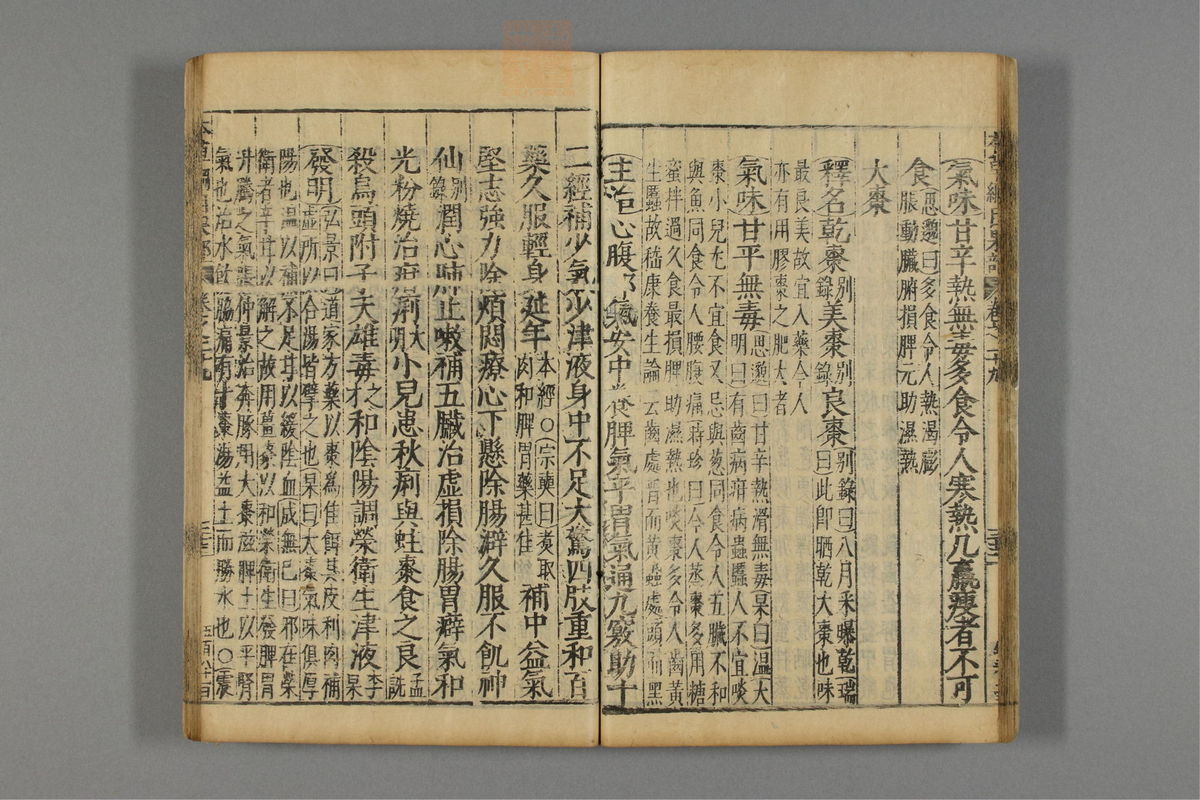 氣味甘辛熱無毒多食令人寒熱凡羸瘦者不可
食思邈曰多食令人熱渴膨
脹動臟腑損脾元助濕熱
大棗
釋名乾棗別錄美棗別錄良棗別錄曰八月采曝乾瑞
曰此即晒乾大棗也味
最良美故宜入藥今人
亦有用膠棗之肥大者
氣味甘平無毒思邈曰甘辛熱滑無毒杲曰溫大
明曰有齒病疳病蟲䘌人不宜啖
棗小兒尤不宜食又忌與葱同食令人五臟不和
與魚同食令人腰腹痛時珍曰今人蒸棗多用糖
蜜拌過久食最損脾助濕熱也啖棗多令人齒黃
生䘌故嵇康養生論云齒處晉而黃蝨處頭而黑
主治心腹邪氣安中養脾氣平胃氣通九竅助十
二經補少氣少津液身中不足大驚四肢重和百
藥久服輕身延年本經○宗奭曰煑取
肉和脾胃藥甚佳補中益氣
堅志強力除煩悶療心下懸除腸澼久服不飢神
仙別錄潤心肺止嗽補五臟治虛損除腸胃癖氣和
光粉燒治疳痢大明小兒患秋痢與蛀棗食之良孟
詵
殺烏頭附子天雄毒之才和陰陽調榮衛生津液李
杲
發明弘景曰道家方藥以棗為佳餌其皮利肉補
虛所以合湯皆擘之也杲曰大棗氣味俱厚
陽也溫以補不足甘以緩陰血成無己曰邪在榮
衛者辛甘以解之故用薑棗以和榮衛生發脾胃
升騰之氣張仲景治奔豚用大棗滋脾土以平腎
氣也治水飲脇痛有十棗湯益土而勝水也○震